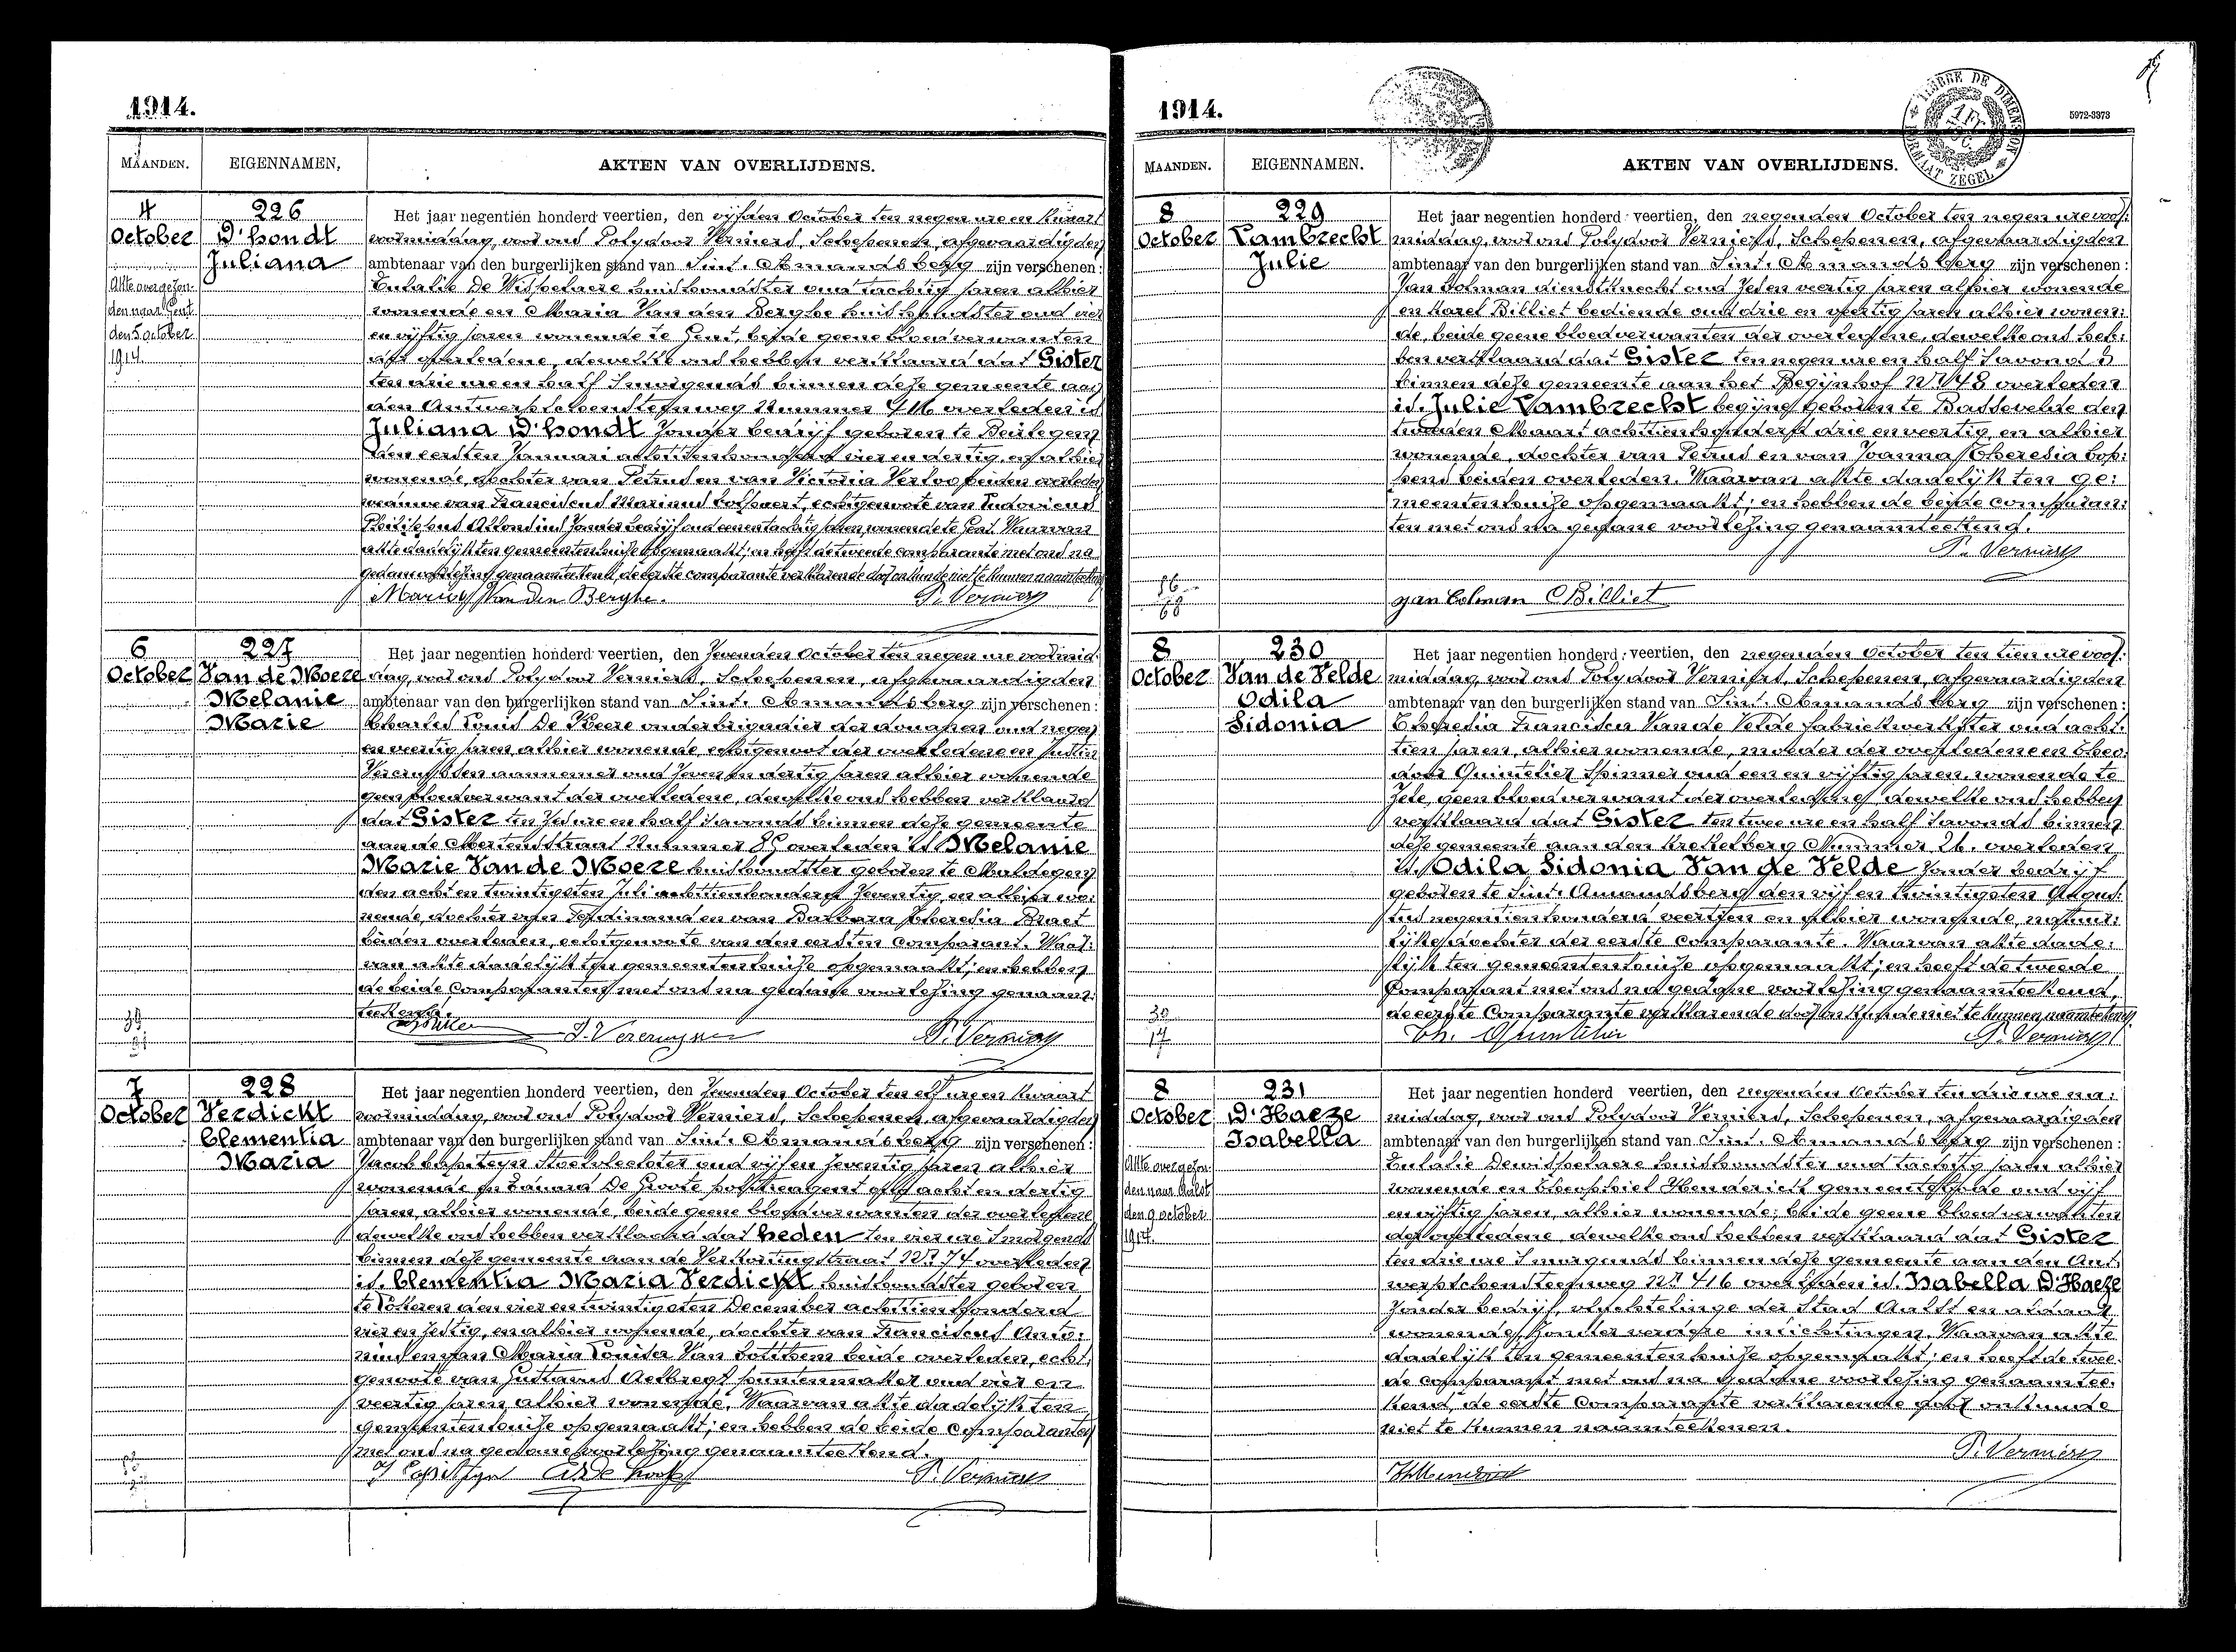 1914.
MAANDEN. EIGENNAMEN, AKTEN VAN OVERLIJDENS.
4 October
226
D'hondt Juliana
Akte overgezon-
den naar Gent
den 5 october
1914.
Het jaar negentien honderd veertien, den vijfden October ten negen ure en kwart
voormiddag, voor ons Polydoor Verniers, Schepenen, afgevaardigden
ambtenaar van den burgerlijken stand van Sint-Amandsberg zijn verschenen:
Eulalie De Wispelaere huishoudster oud tachtig jaren alhier
wonende en Maria Van den Berghe huishoudster oud vier
en vijftig jaren wonende te Gent, beide geene bloedverwanten
der overledene, dewelke ons hebben verklaard dat Gister
ten drie ure en half 's morgends binnen deze gemeente aan
den Antwerpschensteenweg Nummer 416 overleden is
Juliana D'hondt zonder bedrijf geboren te Beirlegem
den eersten Januari achttienhonderd vier en dertig, en alhier
wonende, dochter van Petrus en van Victoria beiden overleden
weduwe van Franciscus Marinus echtgenoote van Ludovicus
Philippus zonder bedrijf oud een en tachtig jaren, wonende te Gent. Waarvan
akte dadelijk ten gemeentenhuize opgemaakt; en heeft de tweede comparante met ons na
gedane voorlezing genaamteekend, de eerste comparante verklarende door onkunde niet te kunnen naamteekenen.
Maria Van den Berghe. P. Verniers
6 October
227
Van de Moere Melanie Marie
Het jaar negentien honderd veertien, den zevenden October ten negen ure voormid-
dag, voor ons Polydoor Verniers, Schepenen, afgevaardigden
ambtenaar van den burgerlijken stand van Sint-Amandsberg zijn verschenen:
Charles Louis De Keere onderbrigadier der douanen oud negen
en veertig jaren, alhier wonende, echtgenoot der overledene en Justin
Vercruyssen aannemer oud zeven en dertig jaren alhier wonende
geen bloedverwant der overledene, dewelke ons hebben verklaard
dat Gister ten zes ure en half 's avonds binnen deze gemeente
aan de Mertensstraat Nummer overleden is Melanie
Marie Van de Moere huishoudster geboren te Maldegem
den acht en twintigsten Juli achttienhonderd zeventig, en alhier wo-
nende, dochter van Ferdinand en van Barbara Theresia Braet
beiden overleden, echtgenoote van den eersten comparant. Waar-
van akte dadelijk ten gemeentenhuize opgemaakt; en hebben
de beide comparanten met ons na gedane voorlezing genaam-
teekend.
J. Vercruyssen P. Verniers
7 October
228
Verdickt Clementia Maria
Het jaar negentien honderd veertien, den zevenden October ten elf ure en kwart
voormiddag, voor ons Polydoor Verniers, Schepenen, afgevaardigden
ambtenaar van den burgerlijken stand van Sint-Amandsberg zijn verschenen:
Jacob Capiteyn Stoelvlechter oud vijf en zeventig jaren alhier
wonende en Eduard De Groote politieagent oud acht en dertig
jaren, alhier wonende, beide geene bloedverwanten der overledene
dewelke ons hebben verklaard dat heden ten vier ure 's morgends
binnen deze gemeente aan de Verkortingstraat N.r 74 overleden
is Clementia Maria Verdickt huishoudster geboren
te Lokeren den vier en twintigsten December achttienhonderd
vier en zestig, en alhier wonende, dochter van Franciscus Anto-
nius en van Maria Louisa Van Cotthem beide overleden, echt-
genoote van Gustavus Aelbregt puntenmaker oud vier en
veertig jaren alhier wonende. Waarvan akte dadelijk ten
gemeentenhuize opgemaakt; en hebben de beide comparanten
met ons na gedane voorlezing genaamteekend.
J Capiteyn P. Verniers
1914.
5972-3373
TIMBRE DE DIMENSION
FORMAAT ZEGEL
MAANDEN. EIGENNAMEN. AKTEN VAN OVERLIJDENS.
8 October
229
Lambrecht Julie
Het jaar negentien honderd veertien, den negenden October ten negen ure voor-
middag, voor ons Polydoor Verniers, Schepenen, afgevaardigden
ambtenaar van den burgerlijken stand van Sint-Amandsberg zijn verschenen:
Jan Colman dienstknecht oud zes en veertig jaren alhier wonende
en Karel Billiet bediende oud drie en veertig jaren alhier wonen-
de, beide geene bloedverwanten der overledene, dewelke ons heb-
ben verklaard dat Gister ten negen ure en half 's avonds
binnen deze gemeente aan het Begijnhof N.r 48 overleden
is Julie Lambrecht begijne geboren te Bassevelde den
tweeden Maart achttienhonderd drie en veertig, en alhier
wonende, dochter van Petrus en van Joanna Theresia Cop-
pens beiden overleden. Waarvan akte dadelijk ten ge-
meentenhuize opgemaakt; en hebben de beide comparan-
ten met ons na gedane voorlezing genaamteekend.
P. Verniers
Jan Colman C Billiet
8 October
230
Van de Velde Odila Sidonia
Het jaar negentien honderd veertien, den negenden October ten tien ure voor-
middag, voor ons Polydoor Verniers, Schepenen, afgevaardigden
ambtenaar van den burgerlijken stand van Sint-Amandsberg zijn verschenen:
Theresia Francisca Van de Velde fabriekwerkster oud acht-
tien jaren, alhier wonende, moeder der overledene en Theo-
door Quintelier Spinner oud een en vijftig jaren, wonende te
Zele, geen bloedverwant der overledene, dewelke ons hebben
verklaard dat Gister ten twee ure en half 's avonds binnen
deze gemeente aan den Krekelberg Nummer 26 overleden
is Odila Sidonia Van de Velde zonder bedrijf
geboren te Sint-Amandsberg den vijf en twintigsten Augus-
tus negentienhonderd veertien en alhier wonende, natuur-
lijke dochter der eerste comparante. Waarvan akte dade-
lijk ten gemeentenhuize opgemaakt; en heeft de tweede
comparant met ons na gedane voorlezing genaamteekend,
de eerste comparante verklarende door onkunde niet te kunnen naamteekenen.
Th. Quintelier P. Verniers
8 October
231
D'Haeze Isabella
Akte overgezon-
den naar Aalst
den 9 october
1914.
Het jaar negentien honderd veertien, den negenden October ten drie ure na-
middag, voor ons Polydoor Verniers, Schepenen, afgevaardigden
ambtenaar van den burgerlijken stand van Sint-Amandsberg zijn verschenen:
Eulalie Dewispelaere huishoudster oud tachtig jaren alhier
wonende en Theophiel Henderick gemeentebode oud vijf
en vijftig jaren, alhier wonende; beide geene bloedverwanten
der overledene, dewelke ons hebben verklaard dat Gister
ten drie ure 's morgends binnen deze gemeente aan den Ant-
werpschensteenweg N.r 416 overleden is Isabella D'Haeze
zonder bedrijf, vluchtelinge der Stad Aalst en aldaar
wonende, zonder verdere inlichtingen. Waarvan akte
dadelijk ten gemeentenhuize opgemaakt; en heeft de twee-
de comparant met ons na gedane voorlezing genaamtee-
kend, de eerste comparante verklarende door onkunde
niet te kunnen naamteekenen.
P. Verniers